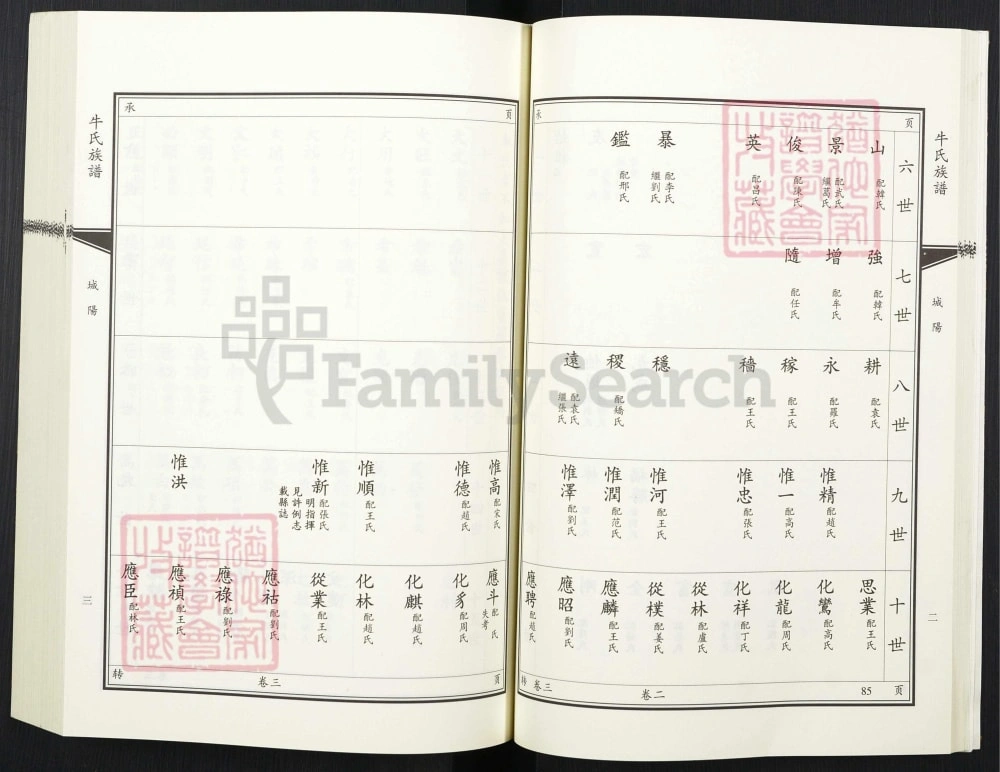 牛氏族譜
城陽
二
承 页
六世
山 配韓氏
景 配武氏 繼葛氏
俊 配陳氏
英 配昌氏
暴 配李氏 繼劉氏
鑑 配邢氏
七世
強 配韓氏
增 配牟氏
隨 配任氏
八世
耕 配袁氏
永 配羅氏
稼 配王氏
穡 配王氏
穩
稷 配矯氏
遠 配袁氏 繼張氏
九世
惟精 配趙氏
惟一 配高氏
惟忠 配張氏
惟河 配王氏
惟潤 配范氏
惟澤 配劉氏
十世
思業 配王氏
化鸞 配高氏
化龍 配周氏
化祥 配丁氏
從林 配盧氏
從樸 配姜氏
應麟 配王氏
應昭 配劉氏
應聘 配趙氏
转 卷三 卷二 85 页
牛氏族譜
城陽
三
承 页
惟高 配宋氏
惟德 配趙氏
惟順 配王氏
惟新 配張氏 明指揮 見許例志 載縣誌
惟洪
應斗 配 氏 失考
化豸 配周氏
化麒 配趙氏
化林 配趙氏
從業 配王氏
應祜 配劉氏
應祿 配劉氏
應禎 配王氏
應臣 配林氏
转 卷三 页
FamilySearch